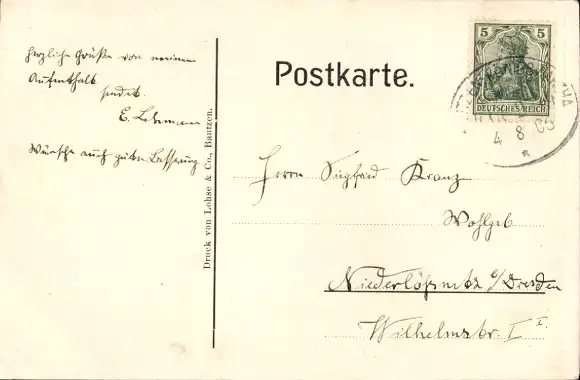 herzliche Grüße von meinem
Aufenthalt
sendet
E. Lehmann
Wünsche auch gute Besserung
Druck von Lohse & Co., Bautzen.
Postkarte.
5 5
DEUTSCHES REICH
4 8 05
Herrn Siegfried Kranz
Wohlgeb
Niederlößnitz b/Dresden
Wilhelmstr. I